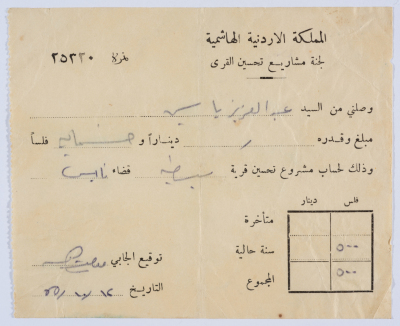 المملكة الاردنية الهاشمية
لجنة مشاريع تحسين القرى
نمرة ٢٥٣٢٠
وصلني من السيد عبد العزيز ياسين
مبلغ وقدره / ديناراً و خمسماية فلساً
وذلك لحساب مشروع تحسين قرية سبسطية قضاء نابلس
فلس دينار
متأخرة
سنة حالية ٥٠٠
المجموع ٥٠٠
توقيع الجابي
التاريخ